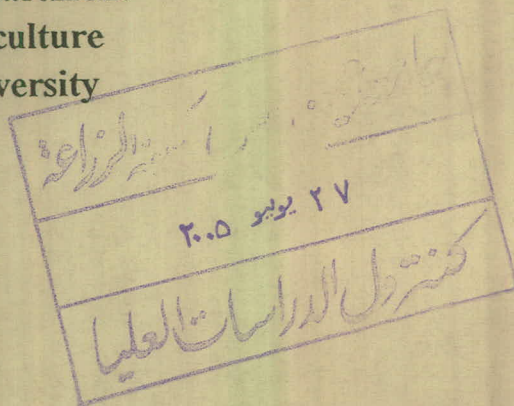 culture
versity
الزراعة
٢٧ يوليو ٢٠٠٥
كنترول الدراسات العليا